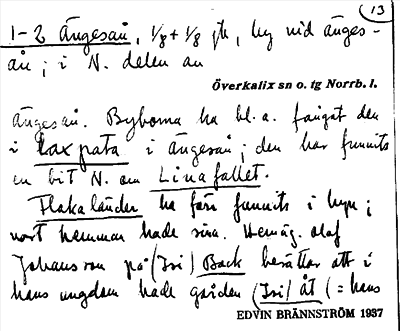 13
1-2 Ängesån, 1/8 + 1/8 by vid änges-
ån; i N. delen av
Överkalix sn o. tg Norrb. l.
Ängesån. Byborna ha bl. a. fångat den
i laxpata i Ängesån; den har funnits
en bit N. om Linafallet.
Flakaländer ha förr funnits i byn;
vart hemman hade sina. Hemäg. Olof
Johansson på (Isi) Back berättar att i
hans ungdom hade gården (Isi) åt (= hans
EDVIN BRÄNNSTRÖM 1937